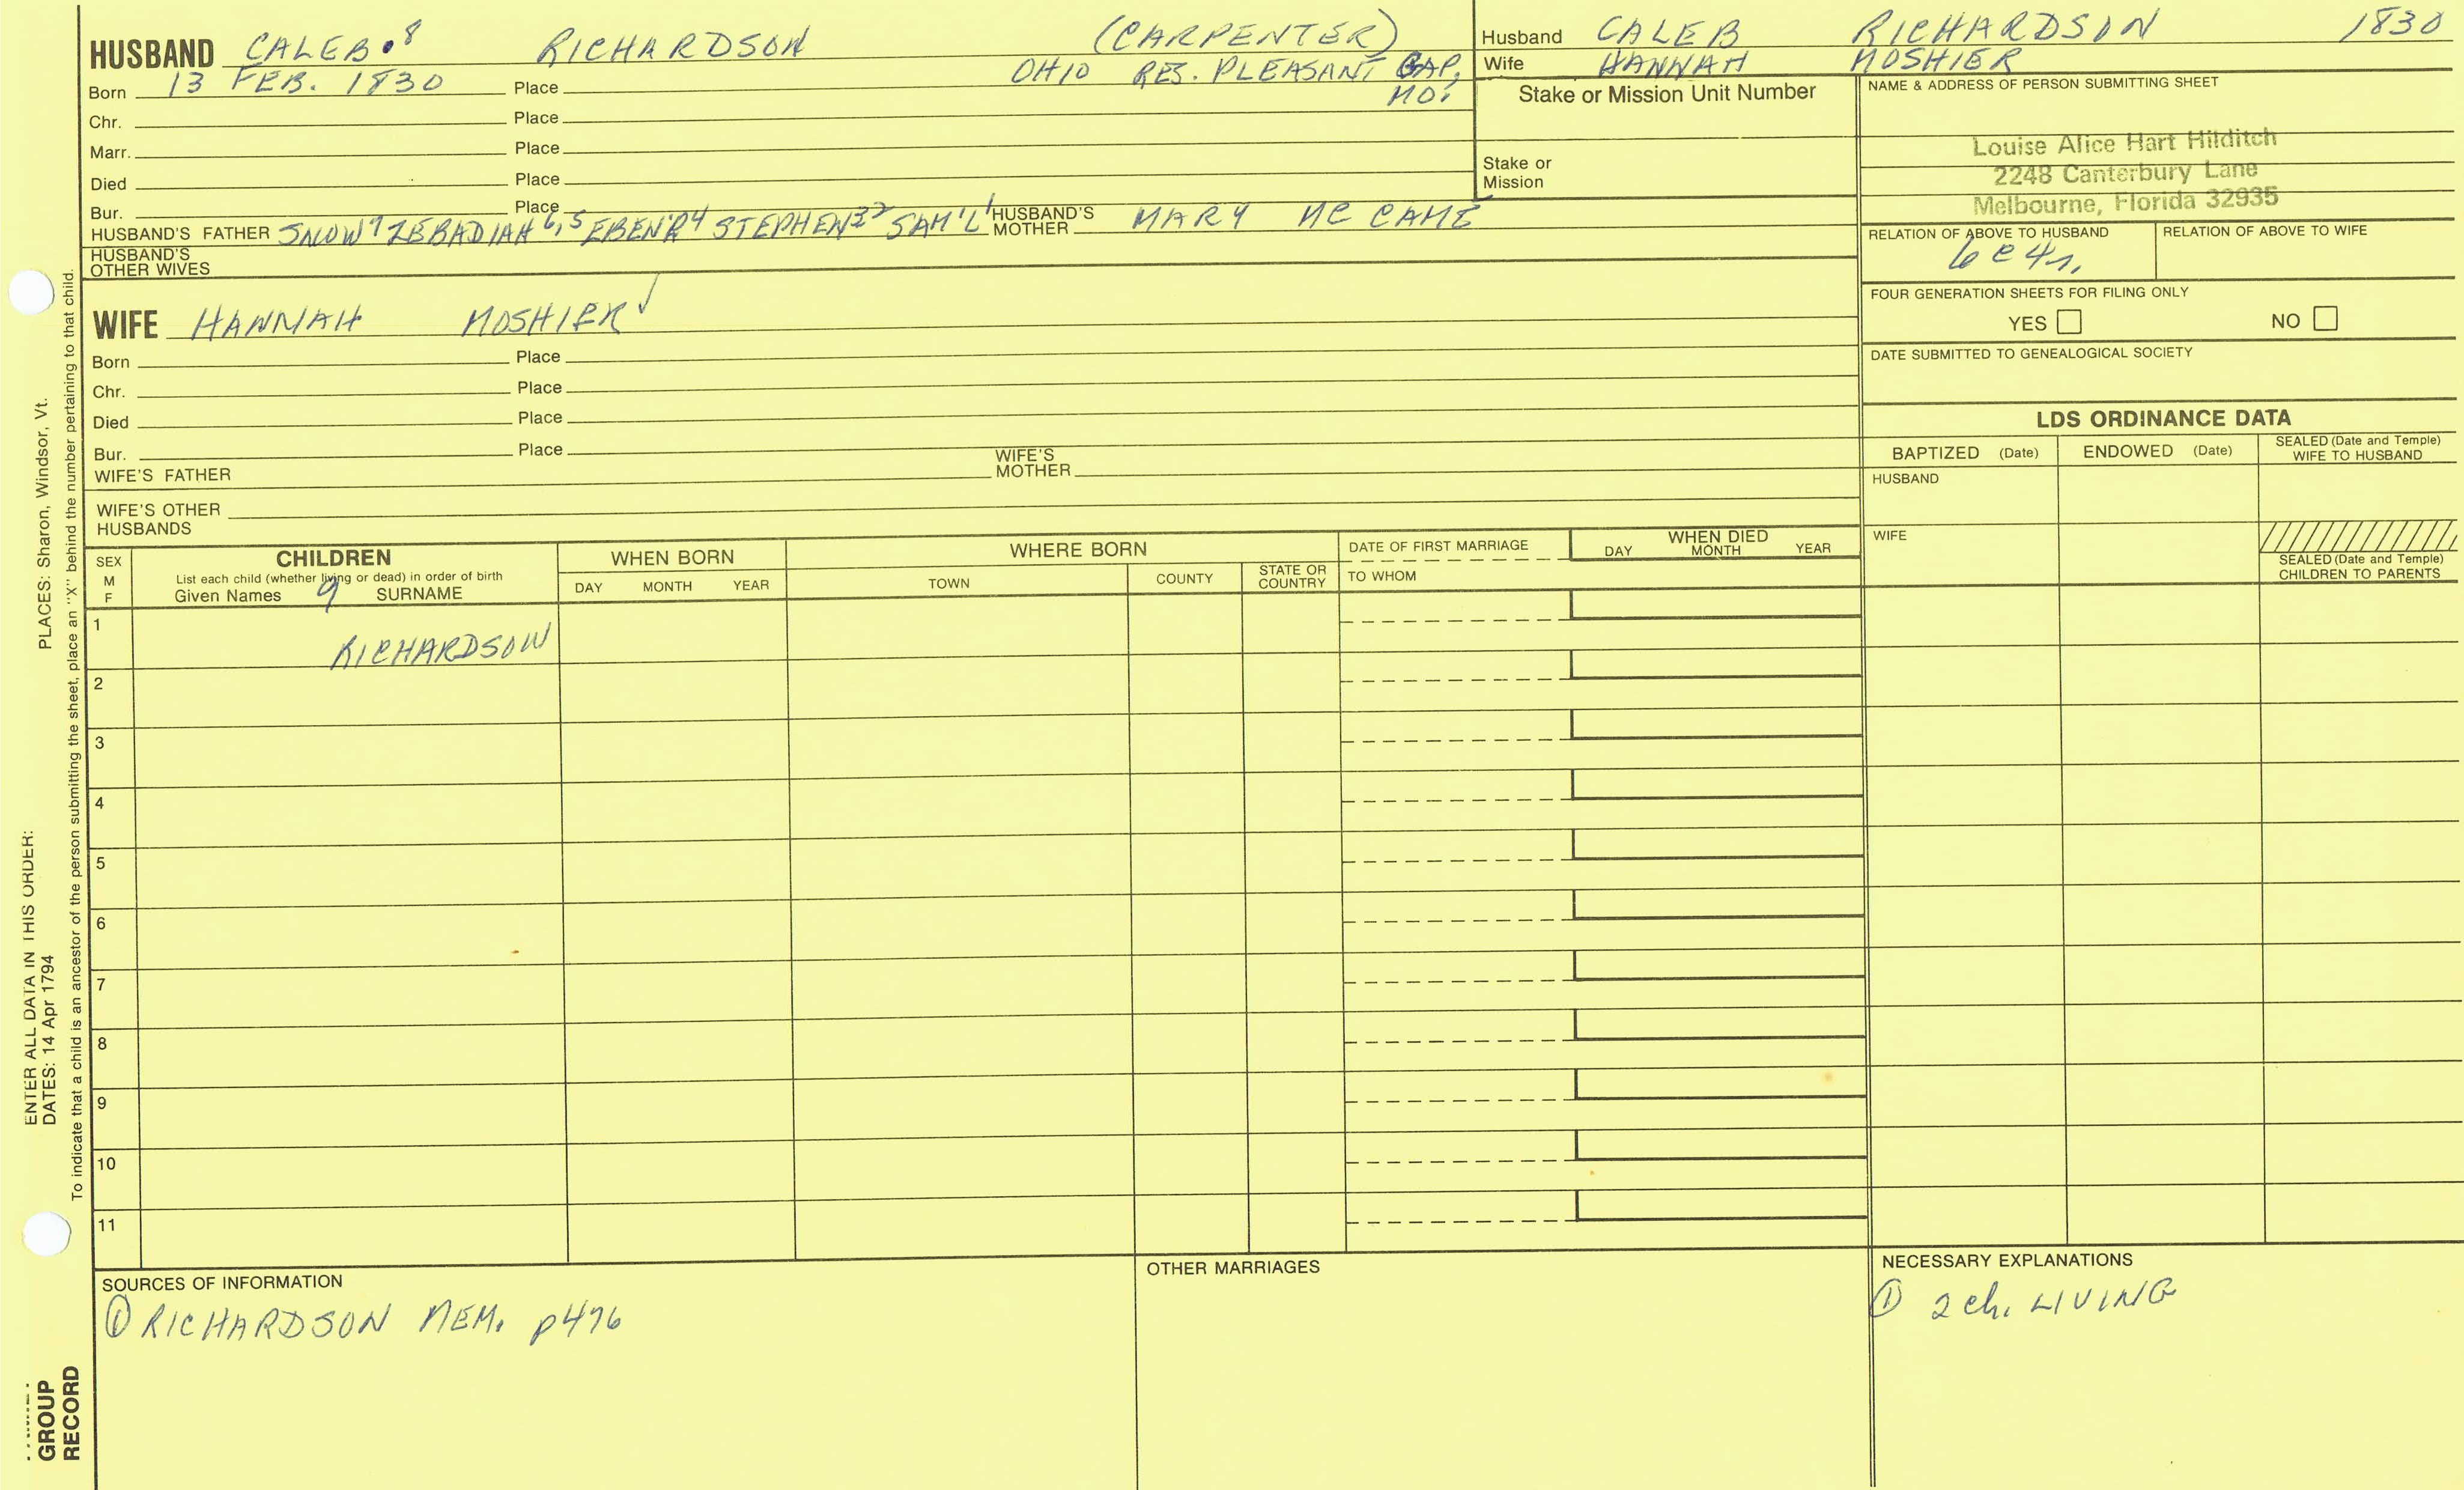 HUSBAND CALEB.8 RICHARDSON (CARPENTER)
Born 13 FEB. 1830 Place OHIO RES. PLEASANT GAP, MO.
Chr. Place
Marr. Place
Died Place
Bur. Place
HUSBAND'S FATHER SNOW7 ZEBADIAH6,5 EBEN'R4 STEPHEN32 SAM'L1 HUSBAND'S MOTHER MARY MC CAME
HUSBAND'S OTHER WIVES
Husband CALEB RICHARDSON 1830
Wife HANNAH MOSHIER
Stake or Mission Unit Number
Stake or Mission
NAME & ADDRESS OF PERSON SUBMITTING SHEET
Louise Alice Hart Hilditch
2248 Canterbury Lane
Melbourne, Florida 32935
RELATION OF ABOVE TO HUSBAND RELATION OF ABOVE TO WIFE
6C4r.
FOUR GENERATION SHEETS FOR FILING ONLY
YES NO
DATE SUBMITTED TO GENEALOGICAL SOCIETY
WIFE HANNAH MOSHIER ✓
Born Place
Chr. Place
Died Place
Bur. Place
WIFE'S FATHER WIFE'S MOTHER
WIFE'S OTHER HUSBANDS
LDS ORDINANCE DATA
BAPTIZED (Date) ENDOWED (Date) SEALED (Date and Temple) WIFE TO HUSBAND
HUSBAND
WIFE
SEALED (Date and Temple) CHILDREN TO PARENTS
SEX M F
CHILDREN
List each child (whether living or dead) in order of birth
Given Names 9 SURNAME
WHEN BORN
DAY MONTH YEAR
WHERE BORN
TOWN COUNTY STATE OR COUNTRY
DATE OF FIRST MARRIAGE
TO WHOM
WHEN DIED
DAY MONTH YEAR
1 RICHARDSON
2
3
4
5
6
7
8
9
10
11
SOURCES OF INFORMATION
① RICHARDSON MEM. p476
OTHER MARRIAGES
NECESSARY EXPLANATIONS
① 2 ch. LIVING
ENTER ALL DATA IN THIS ORDER:
DATES: 14 Apr 1794 PLACES: Sharon, Windsor, Vt.
To indicate that a child is an ancestor of the person submitting the sheet, place an "X" behind the number pertaining to that child.
GROUP
RECORD